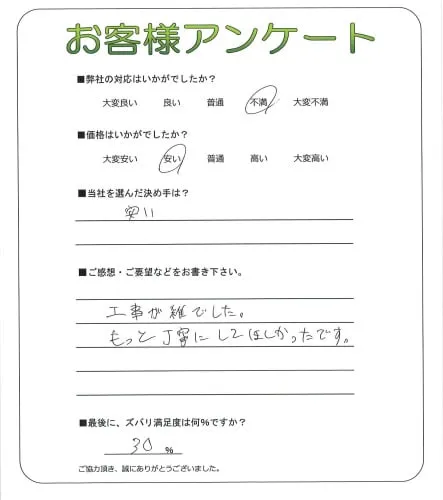 お客様アンケート
■弊社の対応はいかがでしたか？
大変良い 良い 普通 不満 大変不満
■価格はいかがでしたか？
大変安い 安い 普通 高い 大変高い
■当社を選んだ決め手は？
安い
■ご感想・ご要望などをお書き下さい。
工事が雑でした。
もっと丁寧にしてほしかったです。
■最後に、ズバリ満足度は何%ですか？
30 %
ご協力頂き、誠にありがとうございました。